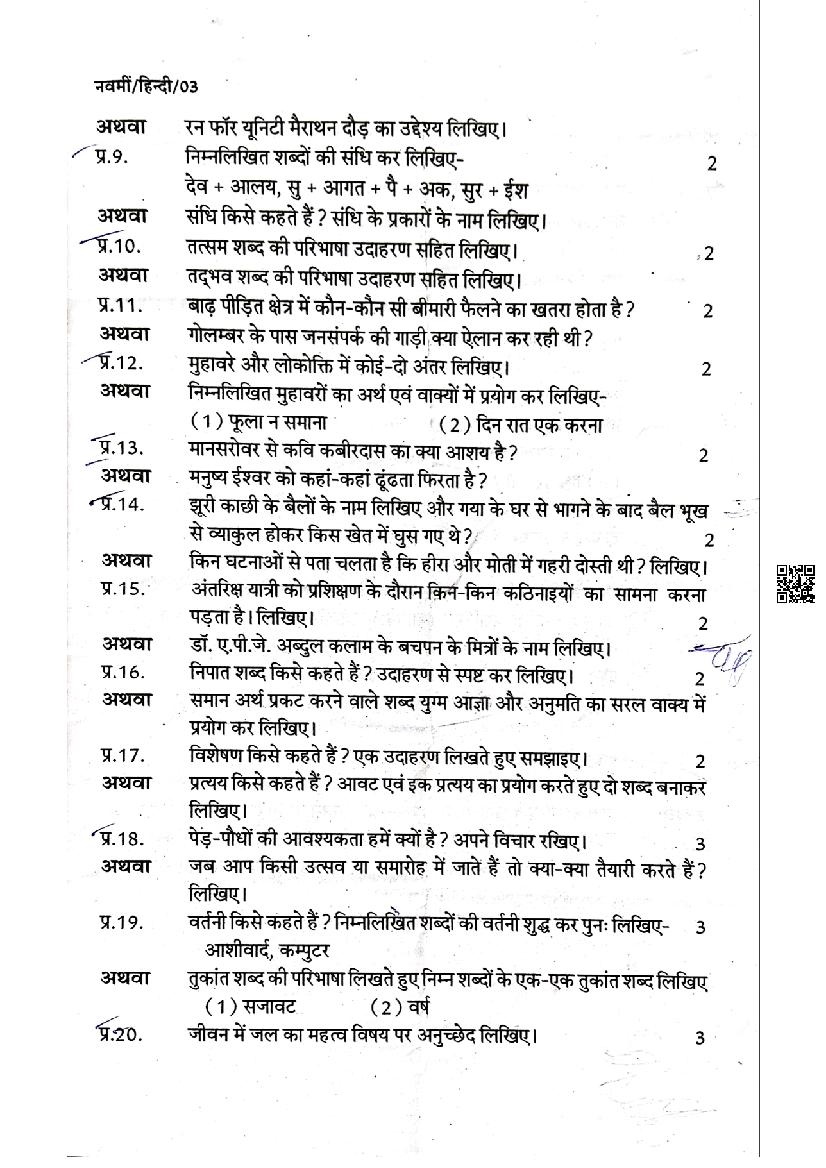 नवमीं/हिन्दी/03
अथवा रन फॉर यूनिटी मैराथन दौड़ का उद्देश्य लिखिए।
प्र.9. निम्नलिखित शब्दों की संधि कर लिखिए- 2
देव + आलय, सु + आगत + पै + अक, सुर + ईश
अथवा संधि किसे कहते हैं ? संधि के प्रकारों के नाम लिखिए।
प्र.10. तत्सम शब्द की परिभाषा उदाहरण सहित लिखिए। 2
अथवा तद्भव शब्द की परिभाषा उदाहरण सहित लिखिए।
प्र.11. बाढ़ पीड़ित क्षेत्र में कौन-कौन सी बीमारी फैलने का खतरा होता है ? 2
अथवा गोलम्बर के पास जनसंपर्क की गाड़ी क्या ऐलान कर रही थी ?
प्र.12. मुहावरे और लोकोक्ति में कोई-दो अंतर लिखिए। 2
अथवा निम्नलिखित मुहावरों का अर्थ एवं वाक्यों में प्रयोग कर लिखिए-
(1) फूला न समाना (2) दिन रात एक करना
प्र.13. मानसरोवर से कवि कबीरदास का क्या आशय है ? 2
अथवा मनुष्य ईश्वर को कहां-कहां ढूंढता फिरता है ?
प्र.14. झूरी काछी के बैलों के नाम लिखिए और गया के घर से भागने के बाद बैल भूख
से व्याकुल होकर किस खेत में घुस गए थे ? 2
अथवा किन घटनाओं से पता चलता है कि हीरा और मोती में गहरी दोस्ती थी ? लिखिए।
प्र.15. अंतरिक्ष यात्री को प्रशिक्षण के दौरान किन-किन कठिनाइयों का सामना करना
पड़ता है। लिखिए। 2
अथवा डॉ. ए.पी.जे. अब्दुल कलाम के बचपन के मित्रों के नाम लिखिए।
प्र.16. निपात शब्द किसे कहते हैं ? उदाहरण से स्पष्ट कर लिखिए। 2
अथवा समान अर्थ प्रकट करने वाले शब्द युग्म आज्ञा और अनुमति का सरल वाक्य में
प्रयोग कर लिखिए।
प्र.17. विशेषण किसे कहते हैं ? एक उदाहरण लिखते हुए समझाइए। 2
अथवा प्रत्यय किसे कहते हैं ? आवट एवं इक प्रत्यय का प्रयोग करते हुए दो शब्द बनाकर
लिखिए।
प्र.18. पेड़-पौधों की आवश्यकता हमें क्यों है ? अपने विचार रखिए। 3
अथवा जब आप किसी उत्सव या समारोह में जाते हैं तो क्या-क्या तैयारी करते हैं ?
लिखिए।
प्र.19. वर्तनी किसे कहते हैं ? निम्नलिखित शब्दों की वर्तनी शुद्ध कर पुनः लिखिए- 3
आशीवार्द, कम्पुटर
अथवा तुकांत शब्द की परिभाषा लिखते हुए निम्न शब्दों के एक-एक तुकांत शब्द लिखिए
(1) सजावट (2) वर्ष
प्र.20. जीवन में जल का महत्व विषय पर अनुच्छेद लिखिए। 3